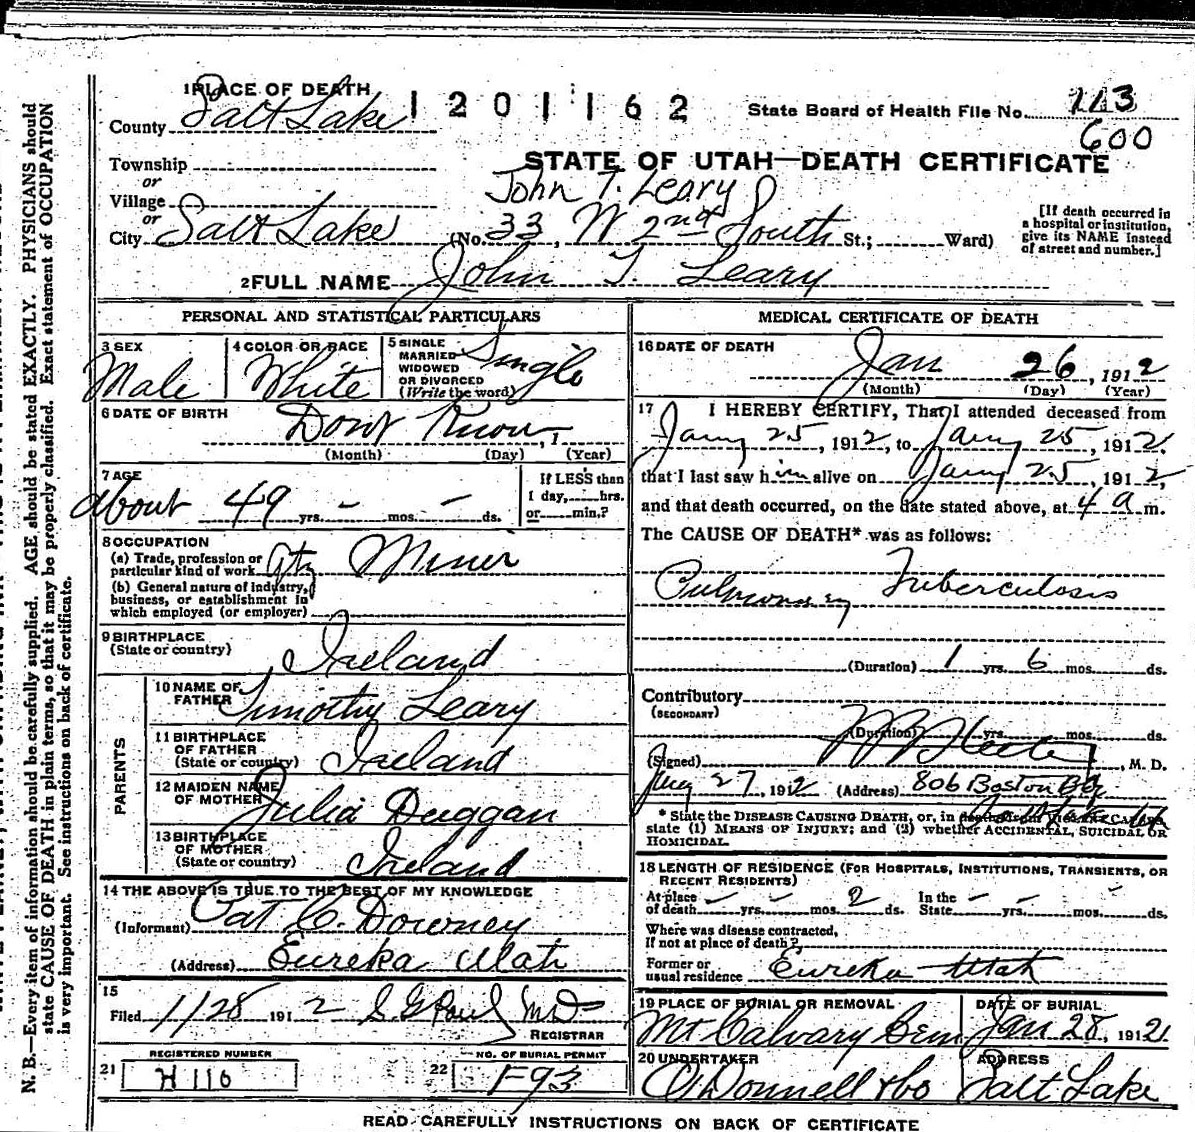 1 PLACE OF DEATH
County Salt Lake
1201162
State Board of Health File No. 113
600
Township
or
Village
or
City Salt Lake
STATE OF UTAH—DEATH CERTIFICATE
John T. Leary
(No. 33, W 2nd South St.; Ward)
[If death occurred in
a hospital or institution,
give its NAME instead
of street and number.]
2 FULL NAME John T. Leary
PERSONAL AND STATISTICAL PARTICULARS
3 SEX
Male
4 COLOR OR RACE
White
5 SINGLE
MARRIED
WIDOWED
OR DIVORCED
(Write the word)
Single
6 DATE OF BIRTH
Dont Know, 1
(Month) (Day) (Year)
7 AGE
about 49 yrs. - mos. - ds.
If LESS than
1 day, hrs.
or min.?
8 OCCUPATION
(a) Trade, profession or
particular kind of work Qtz Miner
(b) General nature of industry,
business, or establishment in
which employed (or employer)
9 BIRTHPLACE
(State or country)
Ireland
PARENTS
10 NAME OF
FATHER
Timothy Leary
11 BIRTHPLACE
OF FATHER
(State or country)
Ireland
12 MAIDEN NAME
OF MOTHER
Julia Duggan
13 BIRTHPLACE
OF MOTHER
(State or country)
Ireland
14 THE ABOVE IS TRUE TO THE BEST OF MY KNOWLEDGE
(Informant) Pat C. Downey
(Address) Eureka Utah
15
Filed 1/28 1912 S. G. Paul M D
REGISTRAR
REGISTERED NUMBER
21 H 110
NO. OF BURIAL PERMIT
22 F93
MEDICAL CERTIFICATE OF DEATH
16 DATE OF DEATH
Jan 26, 1912
(Month) (Day) (Year)
17 I HEREBY CERTIFY, That I attended deceased from
Jany 25, 1912, to Jany 25, 1912,
that I last saw him alive on Jany 25, 1912,
and that death occurred, on the date stated above, at 4 a m.
The CAUSE OF DEATH* was as follows:
Pulmonary Tuberculosis
(Duration) 1 yrs. 6 mos. ds.
Contributory
(SECONDARY)
(Duration) yrs. mos. ds.
(Signed) , M. D.
Jany 27, 1912 (Address) 806 Boston Blg
* State the DISEASE CAUSING DEATH, or, in
state (1) MEANS OF INJURY; and (2) whether ACCIDENTAL, SUICIDAL OR
HOMICIDAL.
18 LENGTH OF RESIDENCE (FOR HOSPITALS, INSTITUTIONS, TRANSIENTS, OR
RECENT RESIDENTS)
At place
of death - yrs. - mos. 2 ds.
In the
State - yrs. - mos. - ds.
Where was disease contracted,
If not at place of death?
Former or
usual residence Eureka Utah
19 PLACE OF BURIAL OR REMOVAL
Mt Calvary Cem
DATE OF BURIAL
Jan 28, 1912
20 UNDERTAKER
O'Donnell & Co
ADDRESS
Salt Lake
READ CAREFULLY INSTRUCTIONS ON BACK OF CERTIFICATE
N. B.—Every item of information should be carefully supplied. AGE should be stated EXACTLY. PHYSICIANS should
state CAUSE OF DEATH in plain terms, so that it may be properly classified. Exact statement of OCCUPATION
is very important. See instructions on back of certificate.